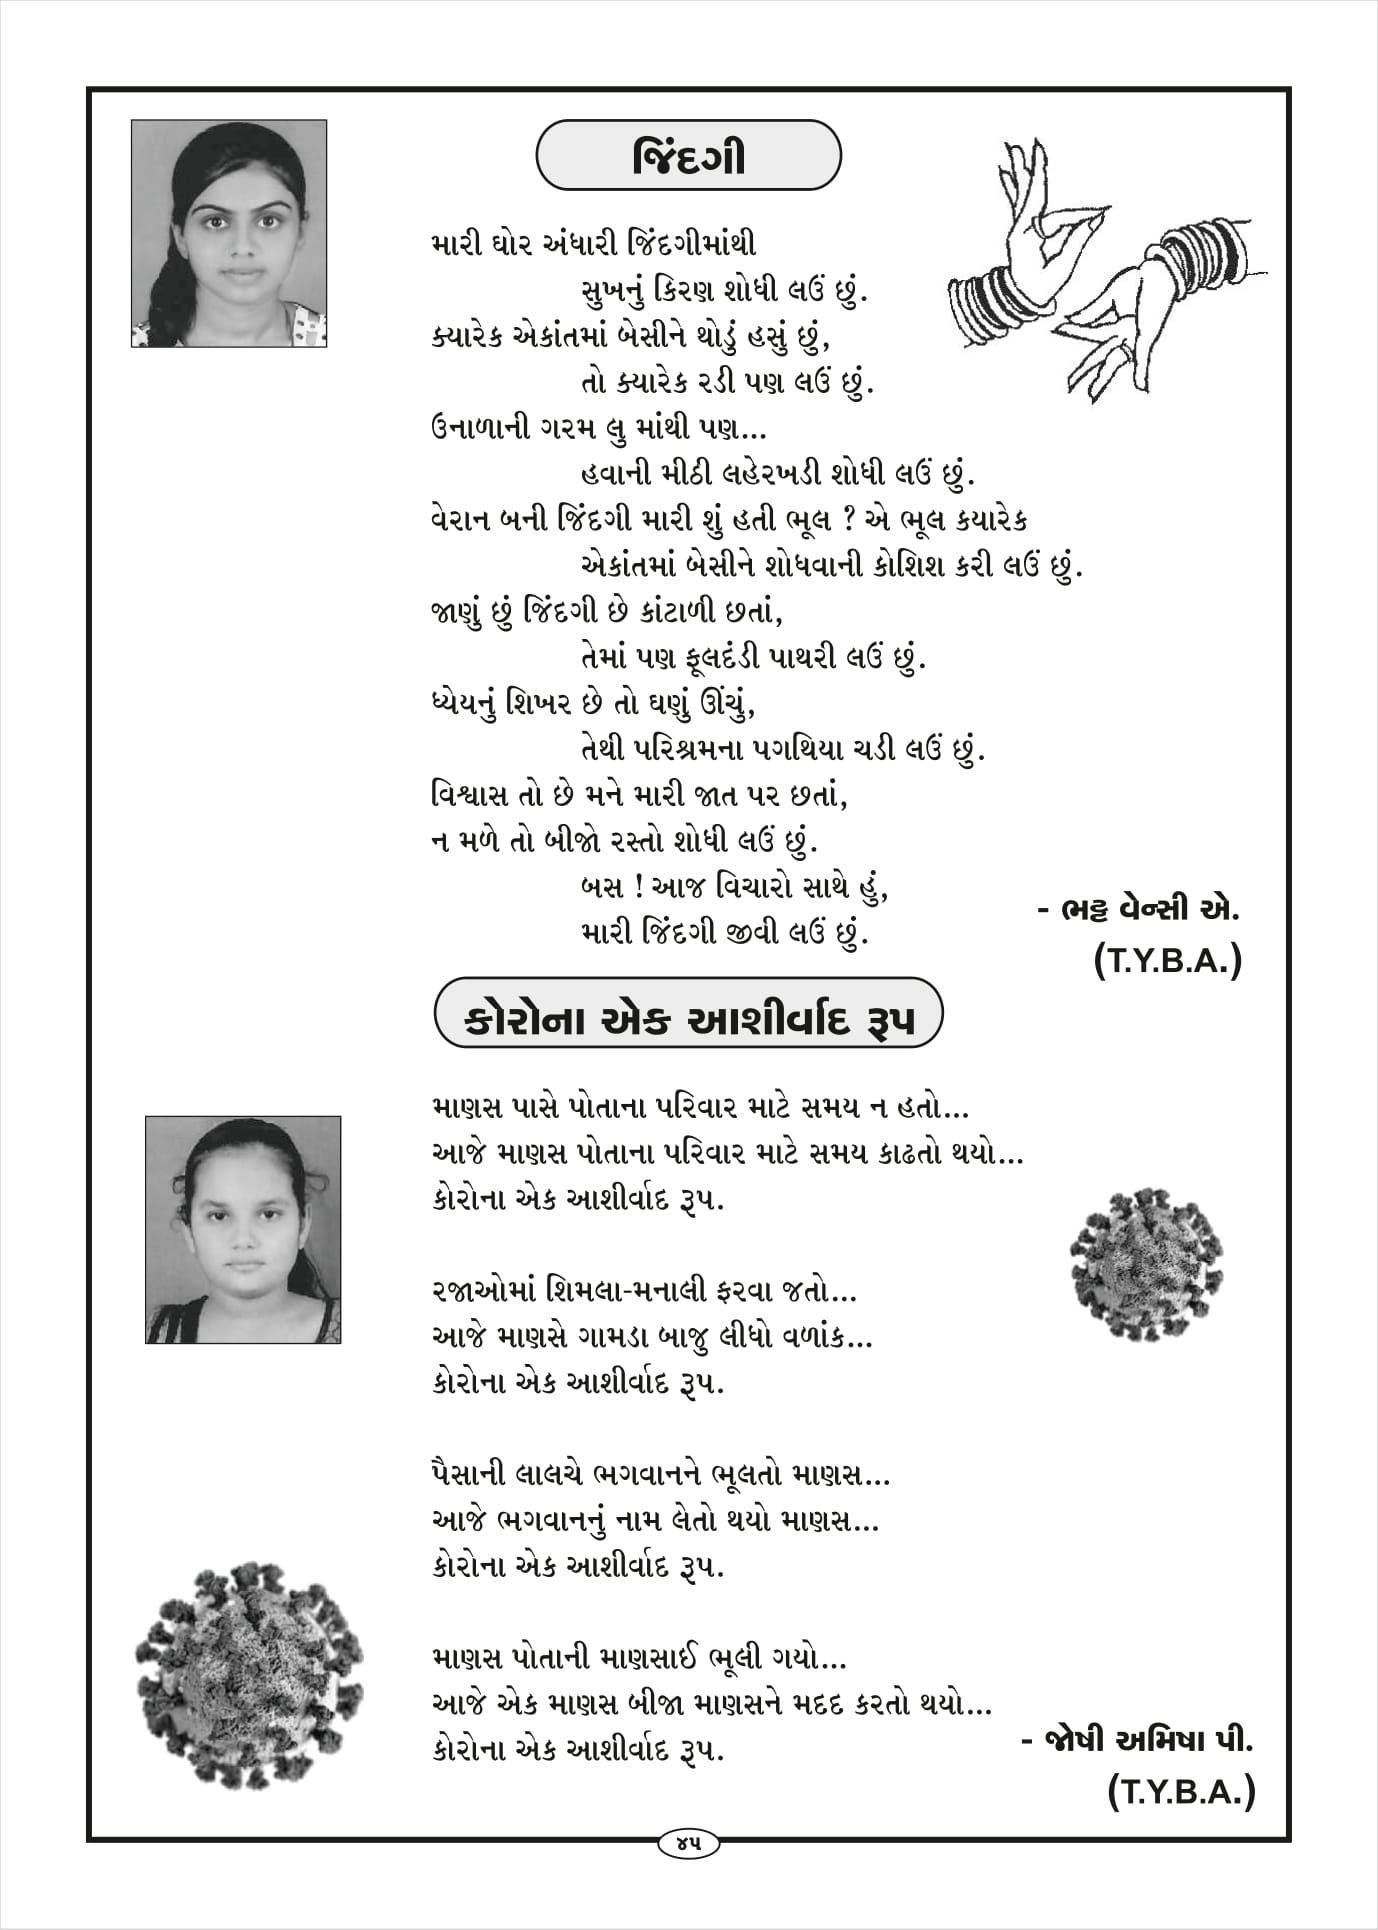 જિંદગી
મારી ઘોર અંધારી જિંદગીમાંથી
સુખનું કિરણ શોધી લઉં છું.
ક્યારેક એકાંતમાં બેસીને થોડું હસું છું,
તો ક્યારેક રડી પણ લઉં છું.
ઉનાળાની ગરમ લુ માંથી પણ...
હવાની મીઠી લહેરખડી શોધી લઉં છું.
વેરાન બની જિંદગી મારી શું હતી ભૂલ ? એ ભૂલ કયારેક
એકાંતમાં બેસીને શોધવાની કોશિશ કરી લઉં છું.
જાણું છું જિંદગી છે કાંટાળી છતાં,
તેમાં પણ ફૂલદંડી પાથરી લઉં છું.
ધ્યેયનું શિખર છે તો ઘણું ઊંચું,
તેથી પરિશ્રમના પગથિયા ચડી લઉં છું.
વિશ્વાસ તો છે મને મારી જાત પર છતાં,
ન મળે તો બીજો રસ્તો શોધી લઉં છું.
બસ ! આજ વિચારો સાથે હું,
મારી જિંદગી જીવી લઉં છું.
- ભટ્ટ વેન્સી એ.
(T.Y.B.A.)
કોરોના એક આશીર્વાદ રૂપ
માણસ પાસે પોતાના પરિવાર માટે સમય ન હતો...
આજે માણસ પોતાના પરિવાર માટે સમય કાઢતો થયો...
કોરોના એક આશીર્વાદ રૂપ.
રજાઓમાં શિમલા-મનાલી ફરવા જતો...
આજે માણસે ગામડા બાજુ લીધો વળાંક...
કોરોના એક આશીર્વાદ રૂપ.
પૈસાની લાલચે ભગવાનને ભૂલતો માણસ...
આજે ભગવાનનું નામ લેતો થયો માણસ...
કોરોના એક આશીર્વાદ રૂપ.
માણસ પોતાની માણસાઈ ભૂલી ગયો...
આજે એક માણસ બીજા માણસને મદદ કરતો થયો...
કોરોના એક આશીર્વાદ રૂપ.
- જોષી અમિષા પી.
(T.Y.B.A.)
૪૫